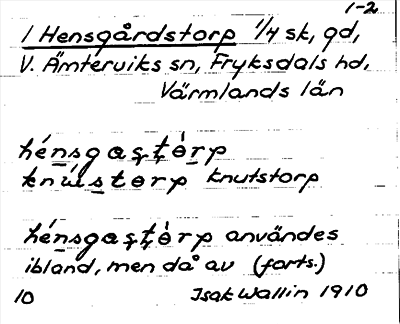 1-2
1 Hensgårdstorp 1/4 sk, gd,
V. Ämterviks sn, Fryksdals hd,
Värmlands län
hénsgaştòrp
knústorp knutstorp
hénsgaştòrp användes
ibland, men då av (forts.)
10 Isak Wallin 1910